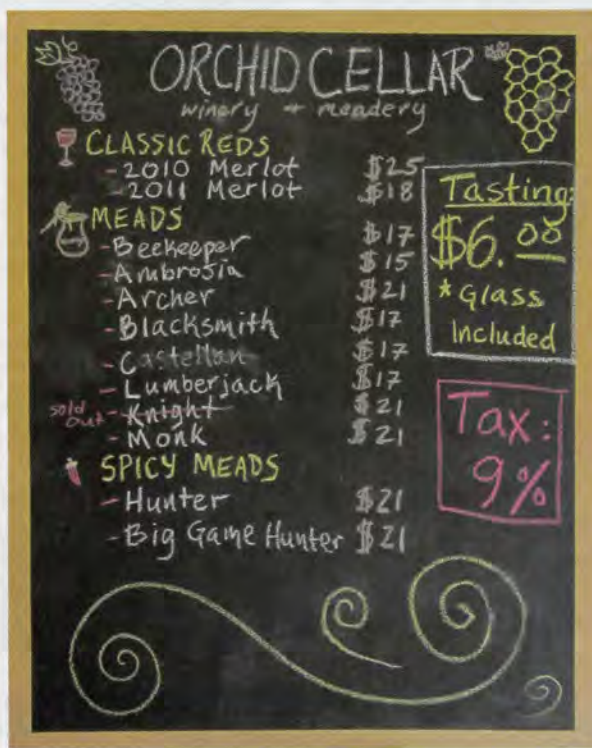 ORCHID CELLAR
winery + meadery
CLASSIC REDS
- 2010 Merlot $25
- 2011 Merlot $18
MEADS
- Beekeeper $17
- Ambrosia $15
- Archer $21
- Blacksmith $17
- Castellan $17
- Lumberjack $17
sold out - Knight $21
- Monk $21
SPICY MEADS
- Hunter $21
- Big Game Hunter $21
Tasting:
$6.00
* Glass
Included
Tax:
9%